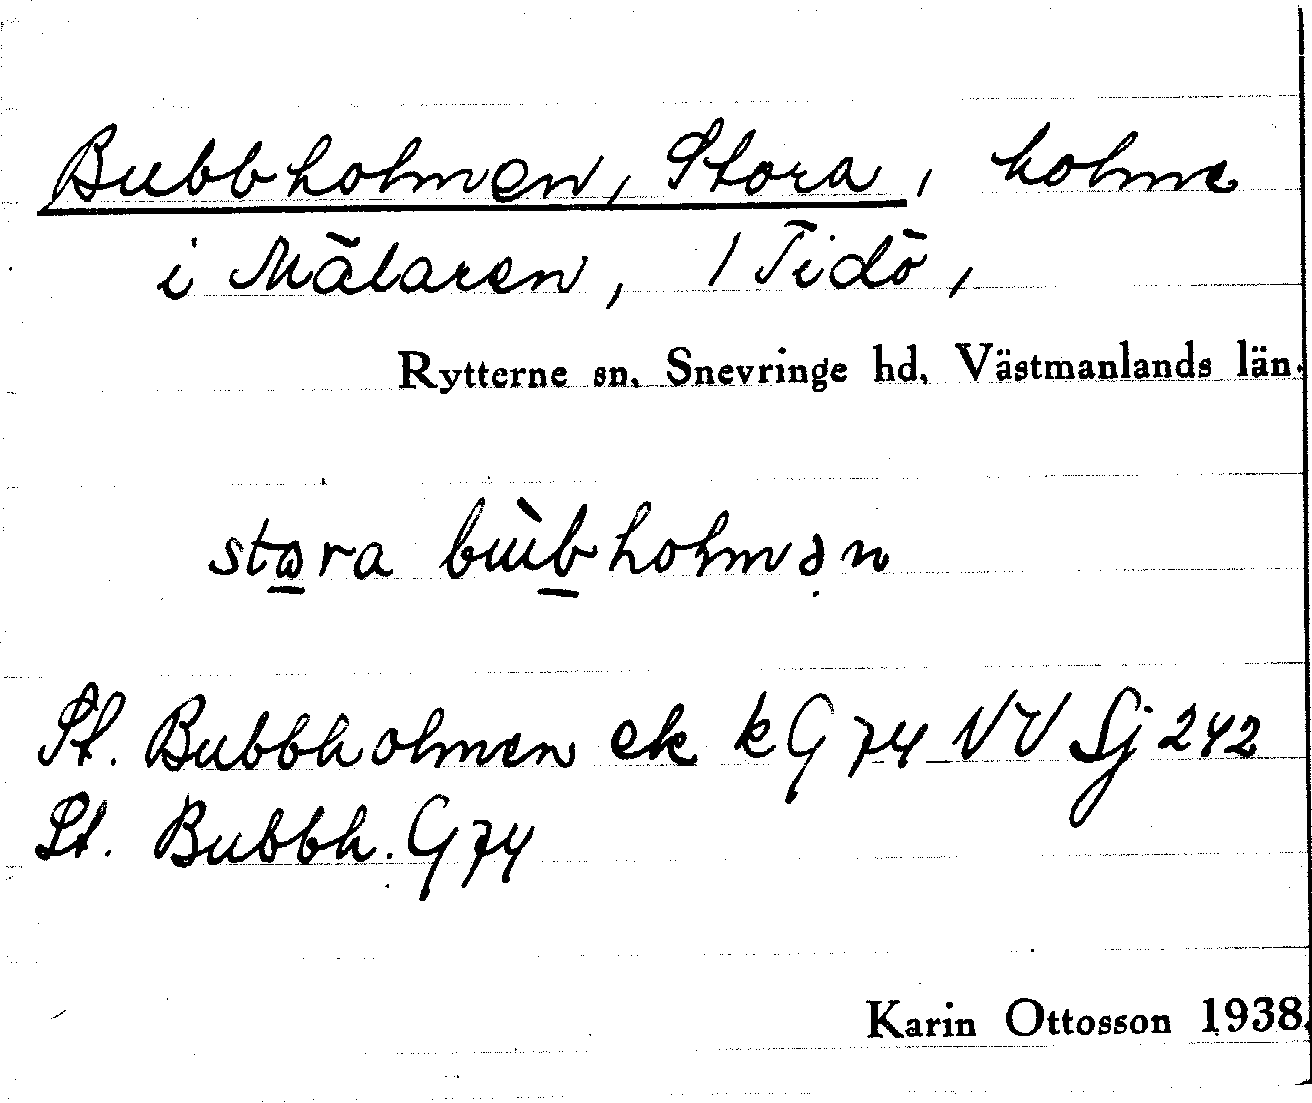 Bubbholmen, Stora, holme
i Mälaren, / Tidö,
Rytterne sn, Snevringe hd, Västmanlands län.
stɷra bùbholmən
St. Bubbholmen ek k G 74 NV Sj 242
St. Bubbh. G 74
Karin Ottosson 1938.